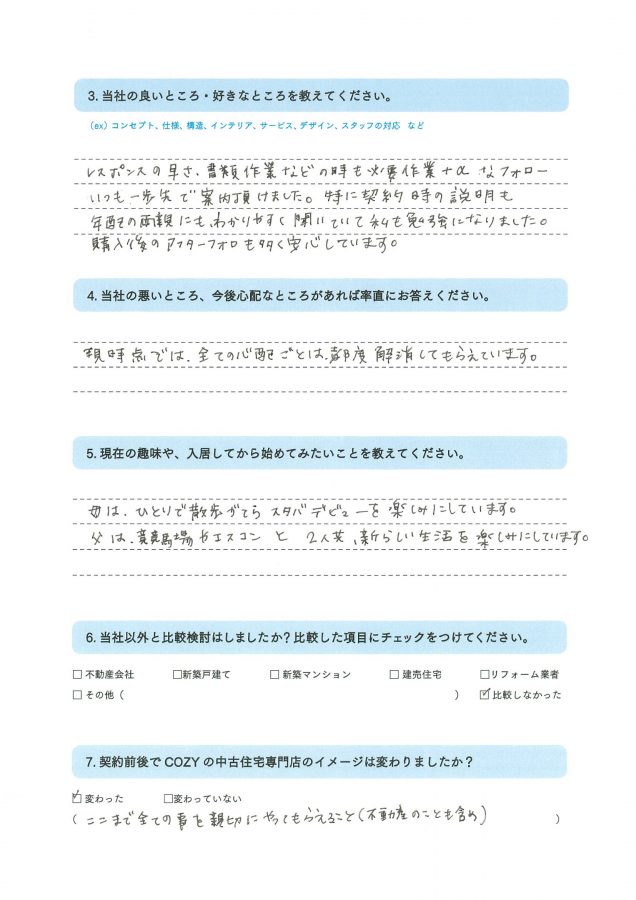 3. 当社の良いところ・好きなところを教えてください。
（ex）コンセプト、仕様、構造、インテリア、サービス、デザイン、スタッフの対応 など
レスポンスの早さ、書類作業などの時も必要作業+αなフォロー
いつも一歩先で案内頂けました。特に契約時の説明も
年配の両親にも、わかりやすく聞いていて私も勉強になりました。
購入後のアフターフォロも多く安心しています。
4. 当社の悪いところ、今後心配なところがあれば率直にお答えください。
現時点では、全ての心配ごとは、都度解消してもらえています。
5. 現在の趣味や、入居してから始めてみたいことを教えてください。
母は、ひとりで散歩がてらスタバデビューを楽しみにしています。
父は、競馬場やエスコンと 2人共、新らしい生活を楽しみにしています。
6. 当社以外と比較検討はしましたか？比較した項目にチェックをつけてください。
□不動産会社 □新築戸建て □新築マンション □建売住宅 □リフォーム業者
□その他（ ） ☑比較しなかった
7. 契約前後で COZY の中古住宅専門店のイメージは変わりましたか？
☑変わった □変わっていない
（ここまで全ての事を親切にやってもらえること(不動産のことも含め) ）